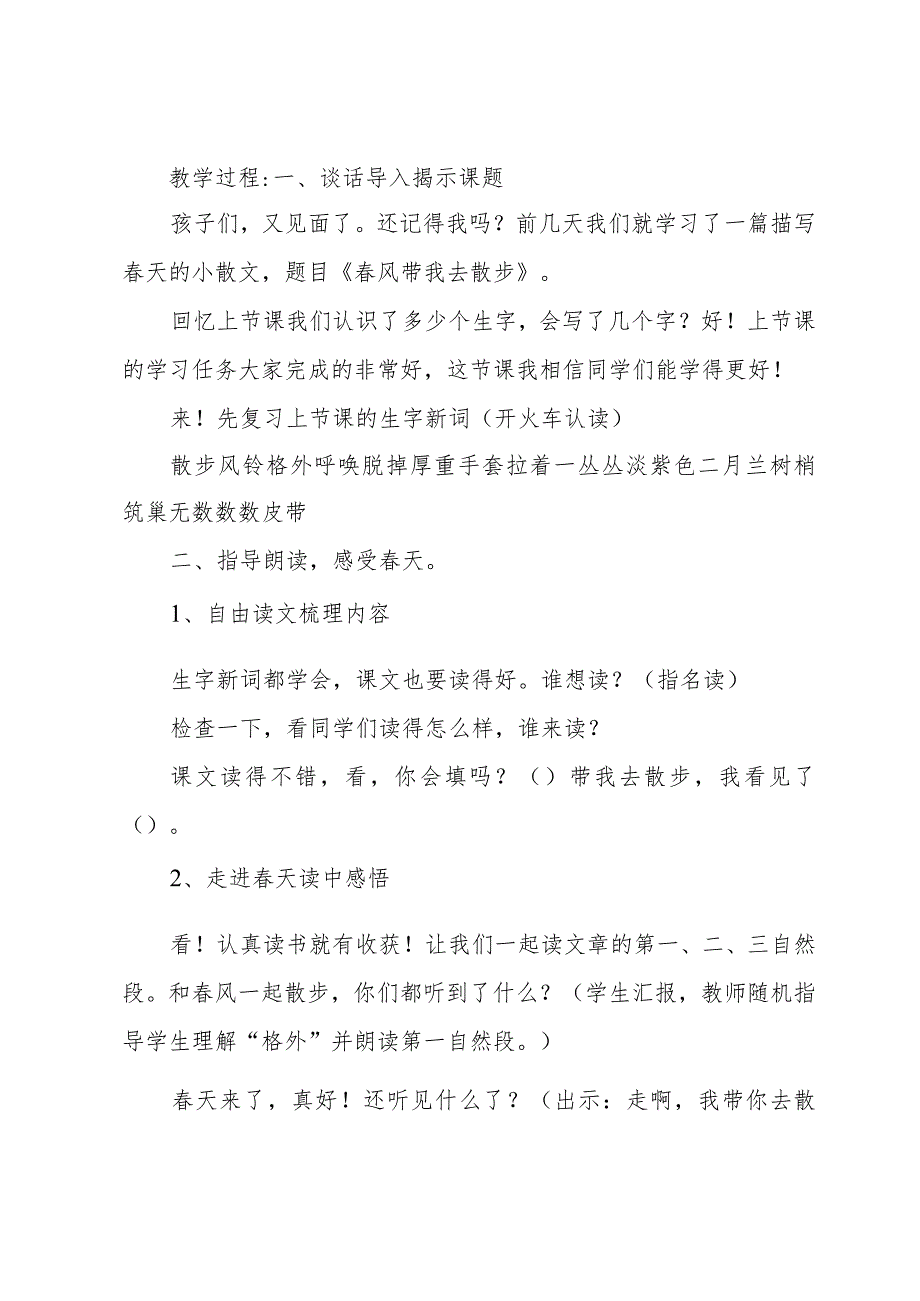 教学过程:一、谈话导入揭示课题
孩子们，又见面了。还记得我吗？前几天我们就学习了一篇描写
春天的小散文，题目《春风带我去散步》。
回忆上节课我们认识了多少个生字，会写了几个字？好！上节课
的学习任务大家完成的非常好，这节课我相信同学们能学得更好！
来！先复习上节课的生字新词（开火车认读）
散步风铃格外呼唤脱掉厚重手套拉着一丛丛淡紫色二月兰树梢
筑巢无数数数皮带
二、指导朗读，感受春天。
1、自由读文梳理内容
生字新词都学会，课文也要读得好。谁想读？（指名读）
检查一下，看同学们读得怎么样，谁来读？
课文读得不错，看，你会填吗？（）带我去散步，我看见了
（）。
2、走进春天读中感悟
看！认真读书就有收获！让我们一起读文章的第一、二、三自然
段。和春风一起散步，你们都听到了什么？（学生汇报，教师随机指
导学生理解“格外”并朗读第一自然段。）
春天来了，真好！还听见什么了？（出示：走啊，我带你去散